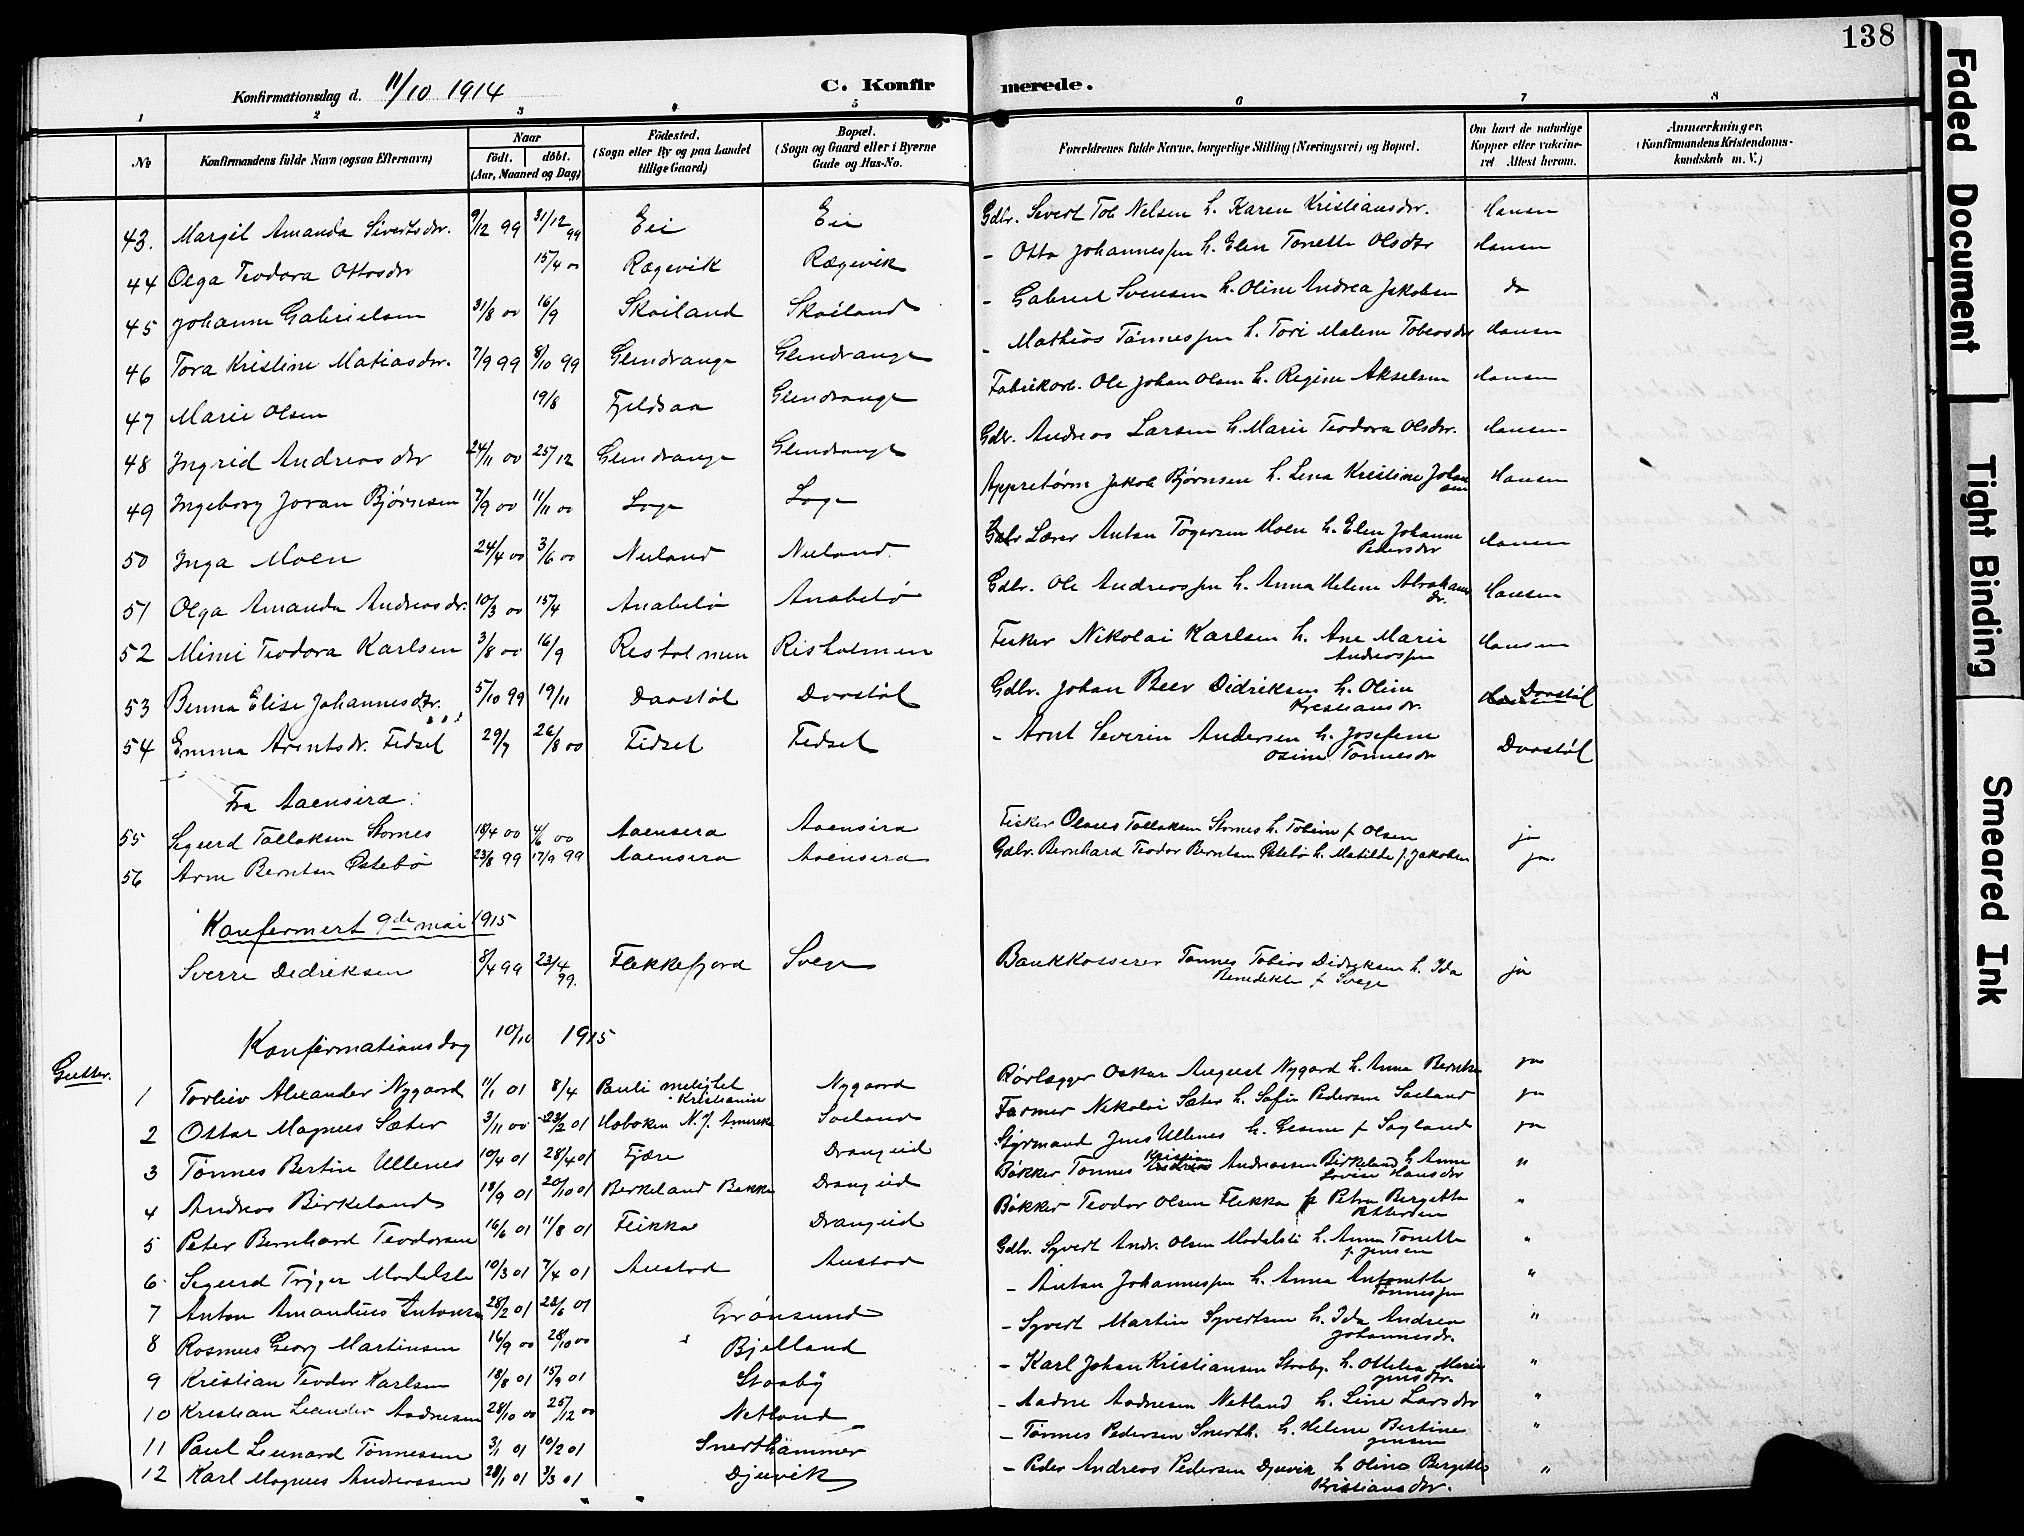 138
Konfirmationsdag d. 11/10 1914
C. Konfirmerede.
1 2 3 4 5 6 7 8
No
Konfirmandens fulde Navn (ogsaa Efternavn)
Naar
födt. döbt.
(Aar, Maaned og Dag)
Födested.
(Sogn eller By og paa Landet
tillige Gaard)
Bopæl.
(Sogn og Gaard eller i Byerne
Gade og Hus-No.
Forældrenes fulde Navne, borgerlige Stilling (Næringsvei) og Bopæl.
Om havt de naturlige
Kopper eller vakcine-
ret Attest herom.
Anmærkninger.
(Konfirmandens Kristendoms-
kundskab m. V.)
43. Margit Amanda Sivertsdr. 9/12 99 31/12 99 Eie Eie Gdbr. Sivert Tob Nelsen h. Karen Kristiansdr. Hansen
44 Olga Teodora Ottosdr 15/4 00 Rægevik Rægevik - Otto Johannessen h. Elen Tonette Olsdr Hansen
45 Johanne Gabrielsen 31/8 00 16/9 Skoiland Skoiland - Gabriel Svensen h. Oline Andrea Jakobsen do
46 Tora Kristine Matiasdr. 7/9 99 8/10 99 Glendrange Glendrange - Mathias Tönnessen h. Tori Malene Tobiasdr Hansen
47 Marie Olsen 19/8 Fjeldsaa Glendrange Fabrikarb. Ole Johan Olsen h. Regine Akselsen Hansen
48 Ingrid Andreasdr 24/11 00 25/12 Glendrange Glendrange Gdbr. Andreas Larsen h. Marie Teodora Olsdr. Hansen
49 Ingeborg Joran Bjørnsen 7/9 00 11/11 00 Loge Loge Appretörm Jakob Bjørnsen h. Lena Kristine Johan
sen Hansen
50 Inga Moen 24/4 00 3/6 00 Nuland Nuland Gdbr Lærer Anton Tögersen Moen h. Elen Johanne
Pedersdr Hansen
51 Olga Amanda Andreasdr. 10/3 00 15/4 Anabelö Anabelö Gdbr. Ole Andreassen h. Anna Helene Abrahams
dr. Hansen
52 Mimi Teodora Karlsen 3/8 00 16/9 Risholmen Risholmen Fisker Nikolai Karlsen h. Ane Marie
Andreassen Hansen
53 Benna Elise Johannesdr. 5/10 99 19/11 Davstöl Dvostöl Gdbr. Johan Beer Didriksen h. Oline
Kristiansdr. Dvostöl
54 Emma Arentsdr. Fidsel 29/7 26/8 00 Fidsel Fidsel - Arnt Severin Andersen h. Josefine
Osine Tönnesdr Dvostöl
Fra Aaensira:
55 Sigurd Tollaksen Stornes 18/4 00 4/6 00 Aaensira Aaensira Fisker Olaves Tollaksen Stornes h. Tobine f. Olsen ja
56 Arne Berntsen Östebö 23/8 99 17/9 99 Aaensira Aaensira Gdbr. Bernhard Teodor Berntsen Östebö h. Matilde f. Jakobsen ja
Konfermert 9de mai 1915
Sverre Didriksen 8/4 99 23/4 99. Flekkefjord Svege Bankkasserer Tönnes Tobias Didriksen h. Ida
Benedikte f Svege ja
Konfirmationsdag 10/10 1915
Gutter.
1 Torleiv Alexander Nygaard 11/1 01 8/4 Pauli meligtet
Kristiania Nygaard Rörlægger Oskar August Nygaard h. Anna Berntsen ja
2 Ottar Magnus Sæter 3/11 00 23/2 01 Hoboken N. J. Amerika Soeland Farmer Nikolai Sæter h. Sofie Pedersen Soeland ja
3 Tønnes Bertin Ullenes 10/4 01 28/4 01 Fjære Drangeid Styrmand Jens Ullenes h. Gesine f Soyland ja
4 Andreas Birkeland 18/9 01 20/10 01 Birkeland Bakke Drangeid Bøkker Tønnes Kristian Andreassen Birkeland h Anne
Lovise Hansdr "
5 Peter Bernhard Teodorsen 16/6 01 11/8 01 Flikka Drangeid Bøkker Teodor Olsen Flikka h Petra Bergitte
Pettersen "
6 Sigurd Trygve Modalsli 10/3 01 7/4 01 Austad Austad Gdbr. Syvert Andr. Olsen Modalsli h. Anna Tonette
f. Jensen "
7 Anton Amandus Antonsen 28/2 01 23/6 01 Grönsund - Anton Johannessen h. Anna Antonette
Tönnessen "
8 Rasmus Georg Martinsen 16/9 00 28/10 00 Bjelland - Syvert Martin Syvertsen h. Ida Andrea
Johannesdr. "
9 Kristian Teodor Karlsen 18/8 01 15/9 01 Straby - Karl Johan Kristiansen Straby. h. Ottelia Marie
Jensdr. "
10 Kristian Leander Aadnesen 28/10 00 25/12 00 Netland - Aadne Aadnesen Netland h. Line Larsdr "
11 Paul Lennard Tönnesen 3/1 01 10/2 01 Snerthammer - Tønnes Pedersen Snerth. h. Helene Bertine
Jensen "
12 Karl Magnus Andreassen 28/1 01 3/3 01 Djuvik - Peder Andreas Pedersen Djuvik h Oline Bergitte
Kristiansdr. "
Faded Document
Tight Binding
Smeared Ink